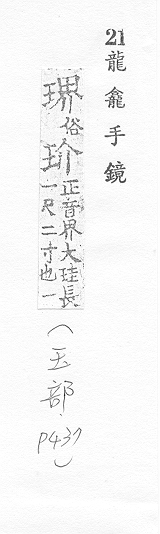 21龍龕手鏡
堺俗玠正音界大珪長
一尺二寸也一
(玉部.
p437)